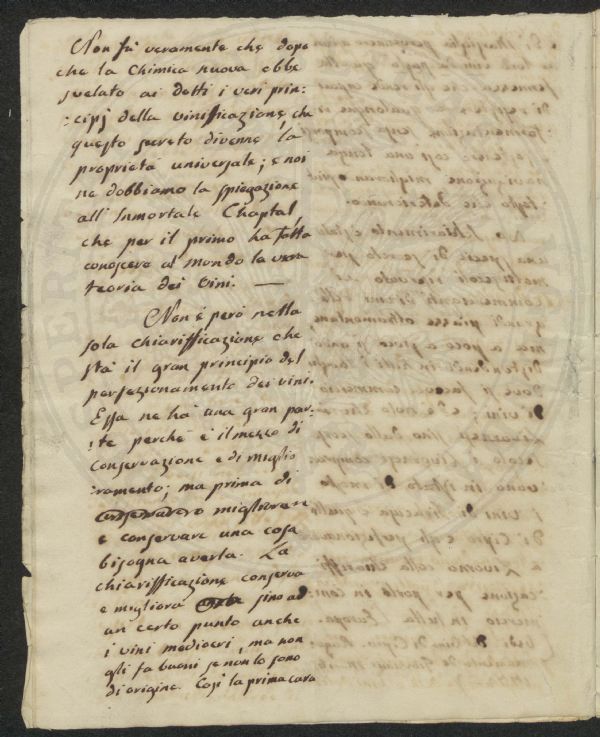 Non fù veramente che dopo
che la Chimica nuova ebbe
svelato ai dotti i veri prin:
:cipj della vinifficazione, che
questo secreto divenne la
proprietà universale; e noi
ne dobbiamo la spiegazione
all'Inmortale Chaptal,
che per il primo ha fatto
conoscere al mondo la vera
teoria dei vini. —
Non è però nella
sola chiarifficazione che
stà il gran principio del
perfezionamento dei vini.
Essa ne hà una gran par:
:te perche è il mezzo di
conservazione e di miglio
:ramento; ma prima di
migliorare
e conservare una cosa
bisogna averla. La
chiarifficazione conserva
e migliora sino ad
un certo punto anche
i vini mediocri, ma non
gli fa buoni se non lo sono
di origine. Così la prima cura